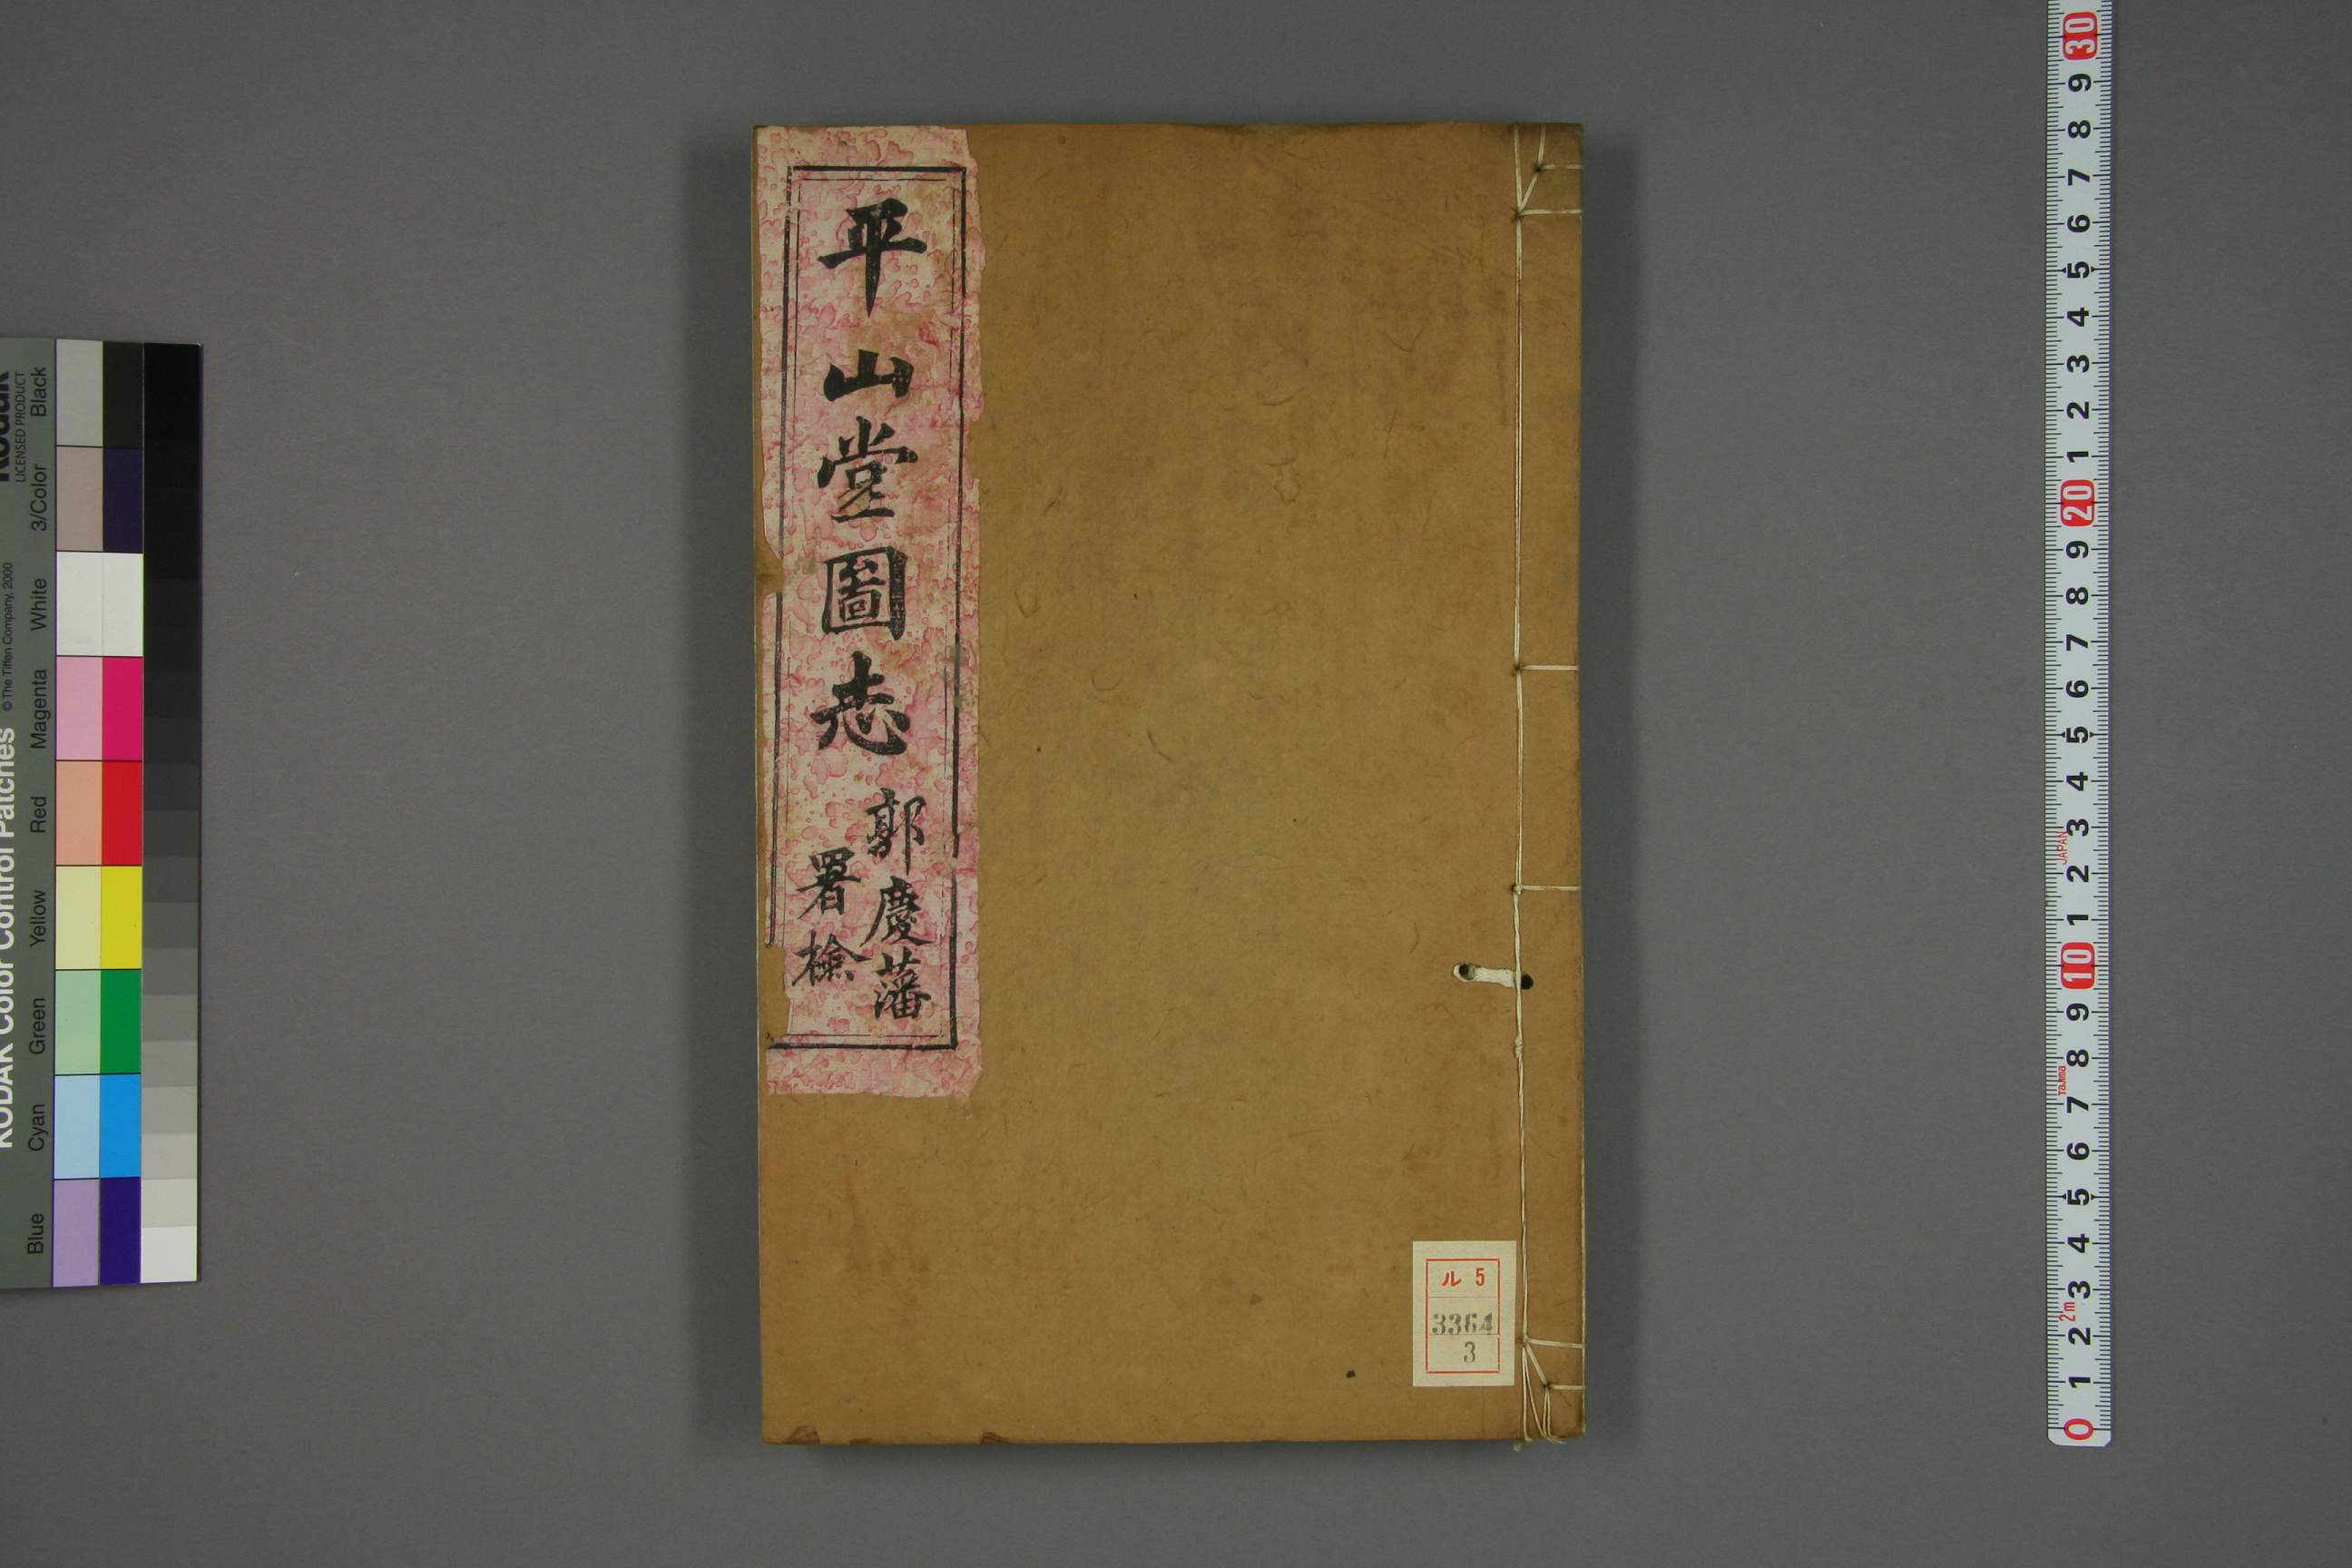 平山堂圖志
郭慶藩
署檢
ル 5
3364
3
KODAK Color Control Patches
LICENSED PRODUCT
© The Tiffen Company, 2000
Blue Cyan Green Yellow Red Magenta White 3/Color Black
0 1 2 3 4 5 6 7 8 9 10 1 2 3 4 5 6 7 8 9 20 1 2 3 4 5 6 7 8 9 30
2m
Tajima
JAPAN